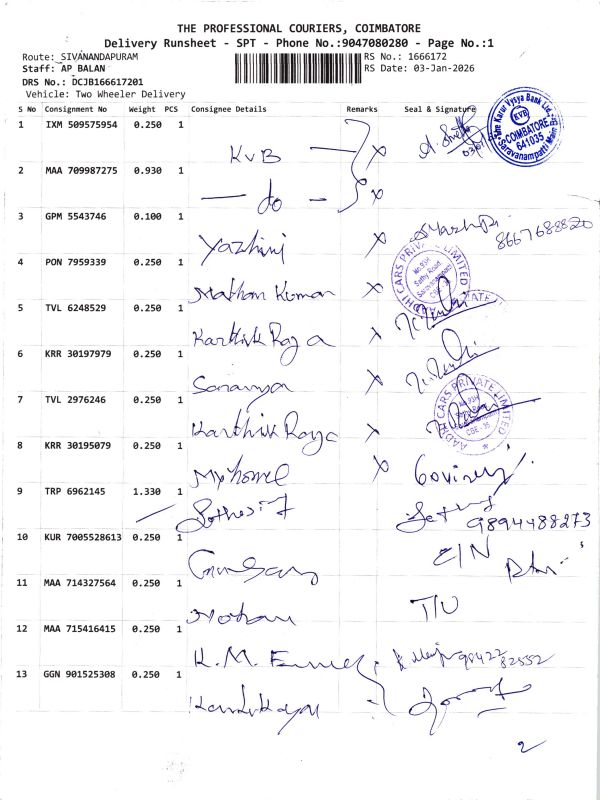 THE PROFESSIONAL COURIERS, COIMBATORE
Delivery Runsheet - SPT - Phone No.:9047080280 - Page No.:1
Route: SIVANANDAPURAM RS No.: 1666172
Staff: AP BALAN RS Date: 03-Jan-2026
DRS No.: DCJB166617201
Vehicle: Two Wheeler Delivery
S No Consignment No Weight PCS Consignee Details Remarks Seal & Signature
1 IXM 509575954 0.250 1 KVB x
The Karur Vysya Bank Ltd. KVB COIMBATORE 641035 Saravanampatti Main Br.
2 MAA 709987275 0.930 1 — do — x
3 GPM 5543746 0.100 1 Yazhini x 8667688820
4 PON 7959339 0.250 1 Mathan Kumar x
AADHI CARS PRIVATE LIMITED Sathy Road Saravanampatti CBE - 35
5 TVL 6248529 0.250 1 Karthik Raja x
6 KRR 30197979 0.250 1 Saranya x
7 TVL 2976246 0.250 1 Karthik Raja x
AADHI CARS PRIVATE LIMITED CBE - 35
8 KRR 30195079 0.250 1 x
9 TRP 6962145 1.330 1 9894488273
10 KUR 7005528613 0.250 1 C/N
11 MAA 714327564 0.250 1 Mohan T/U
12 MAA 715416415 0.250 1 K.M. 98422 82552
13 GGN 901525308 0.250 1
2